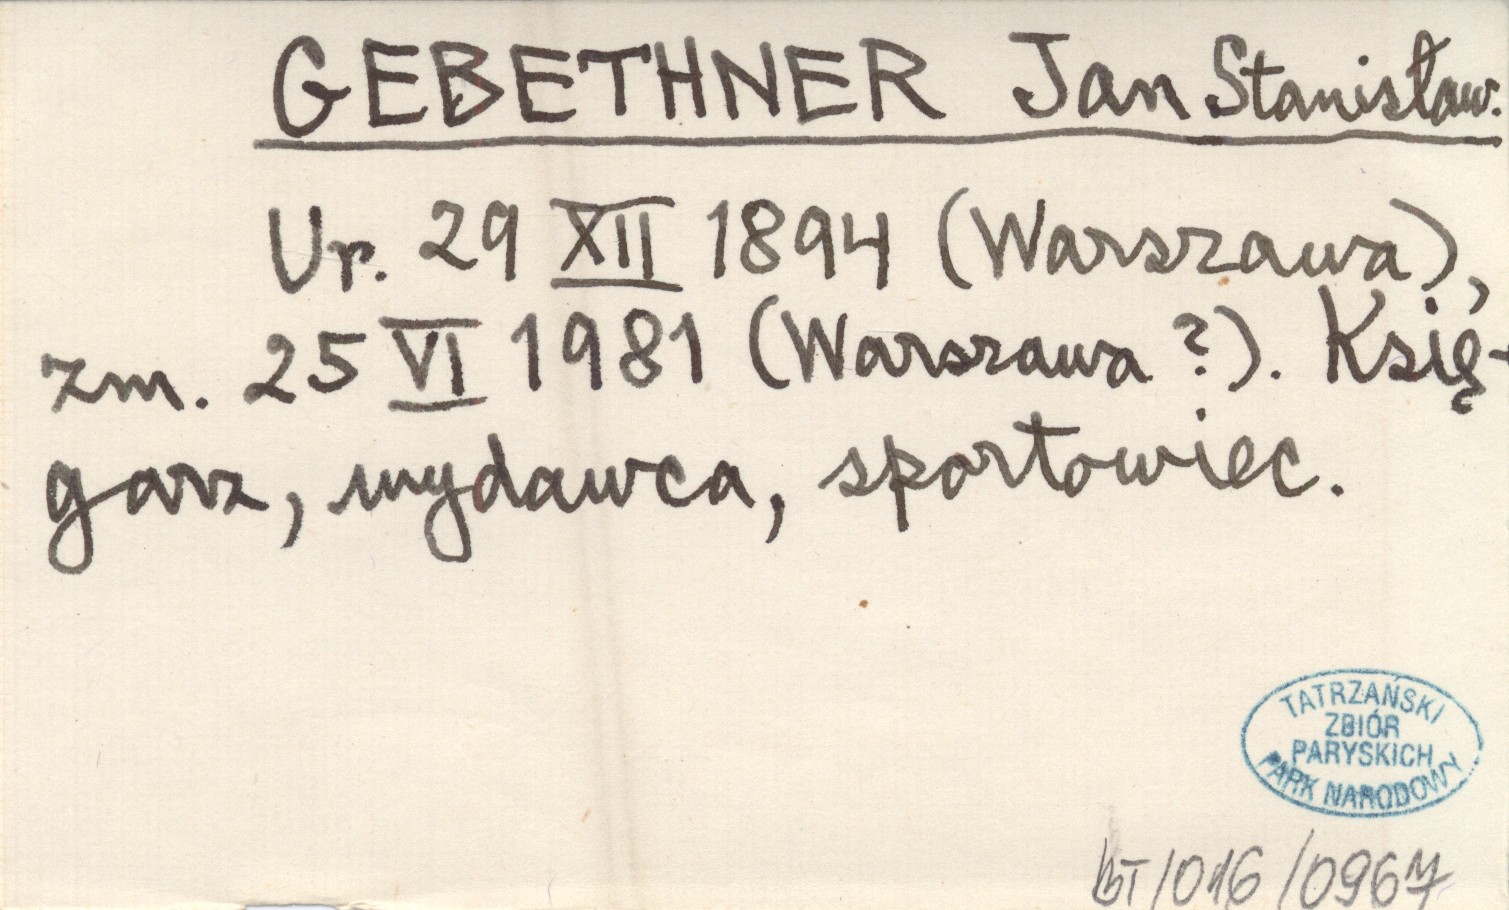 GEBETHNER Jan Stanisław.
Ur. 29 XII 1894 (Warszawa),
zm. 25 VI 1981 (Warszawa ?). Księ-
garz, wydawca, sportowiec.
TATRZAŃSKI
ZBIÓR
PARYSKICH
PARK NARODOWY
BT/016/0967